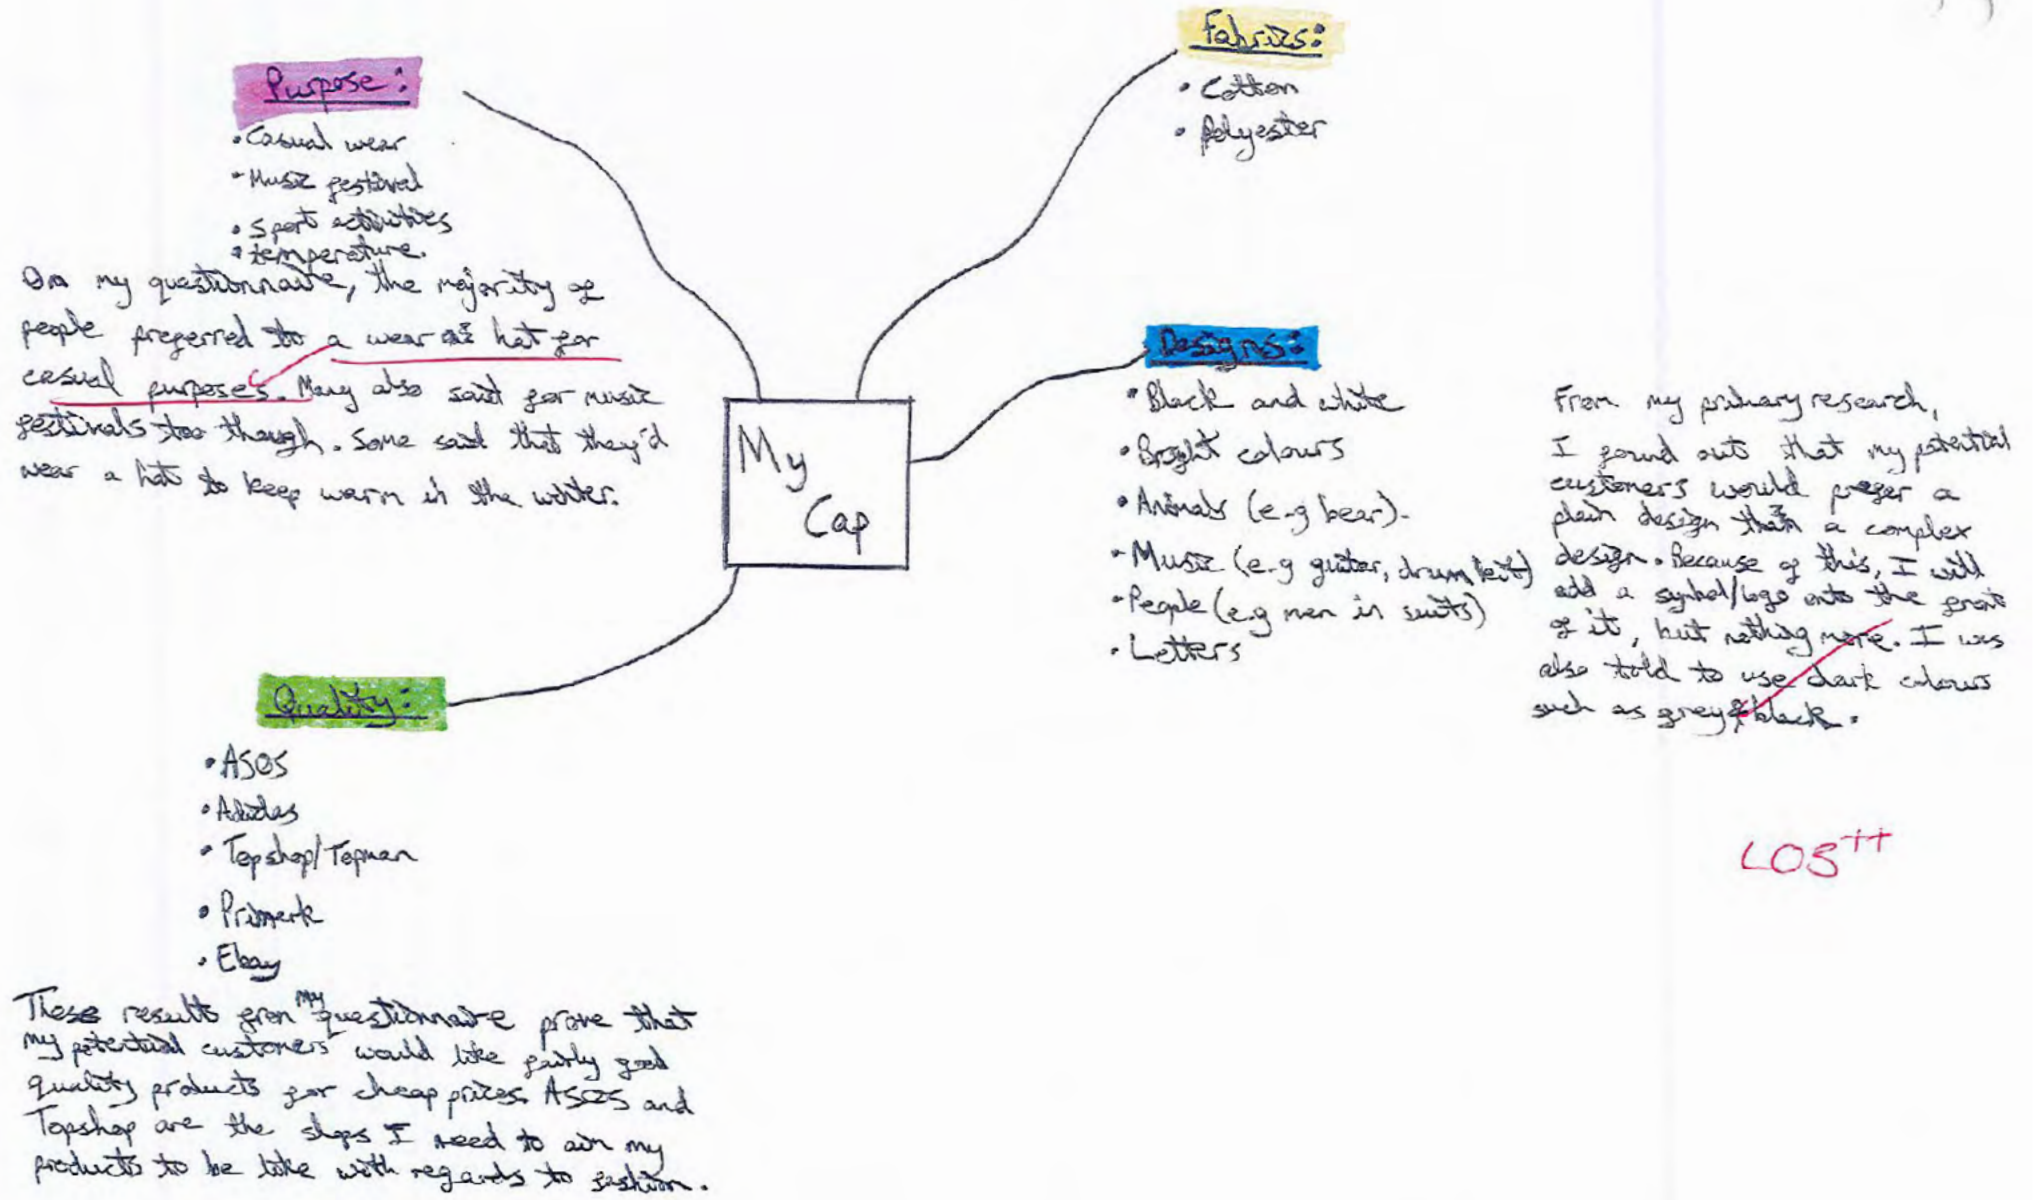 Purpose:
• Casual wear
• Music festival
• Sport activities
• temperature.
On my questionnaire, the majority of
people preferred to a wear a hat for
casual purposes. Many also said for music
festivals too though. Some said that they'd
wear a hat to keep warm in the winter.
Fabrics:
• Cotton
• Polyester
My
Cap
Designs:
• Black and white
• Bright colours
• Animals (e.g bear).
• Music (e.g guitar, drum kit)
• People (e.g men in suits)
• Letters
From my primary research,
I found out that my potential
customers would prefer a
plain design than a complex
design. Because of this, I will
add a symbol/logo onto the front
of it, but nothing more. I was
also told to use dark colours
such as grey & black.
LO3++
Quality:
• ASOS
• Adidas
• Topshop/Topman
• Primark
• Ebay
These results from my questionnaire prove that
my potential customers would like fairly good
quality products for cheap prices. ASOS and
Topshop are the shops I need to aim my
products to be like with regards to fashion.